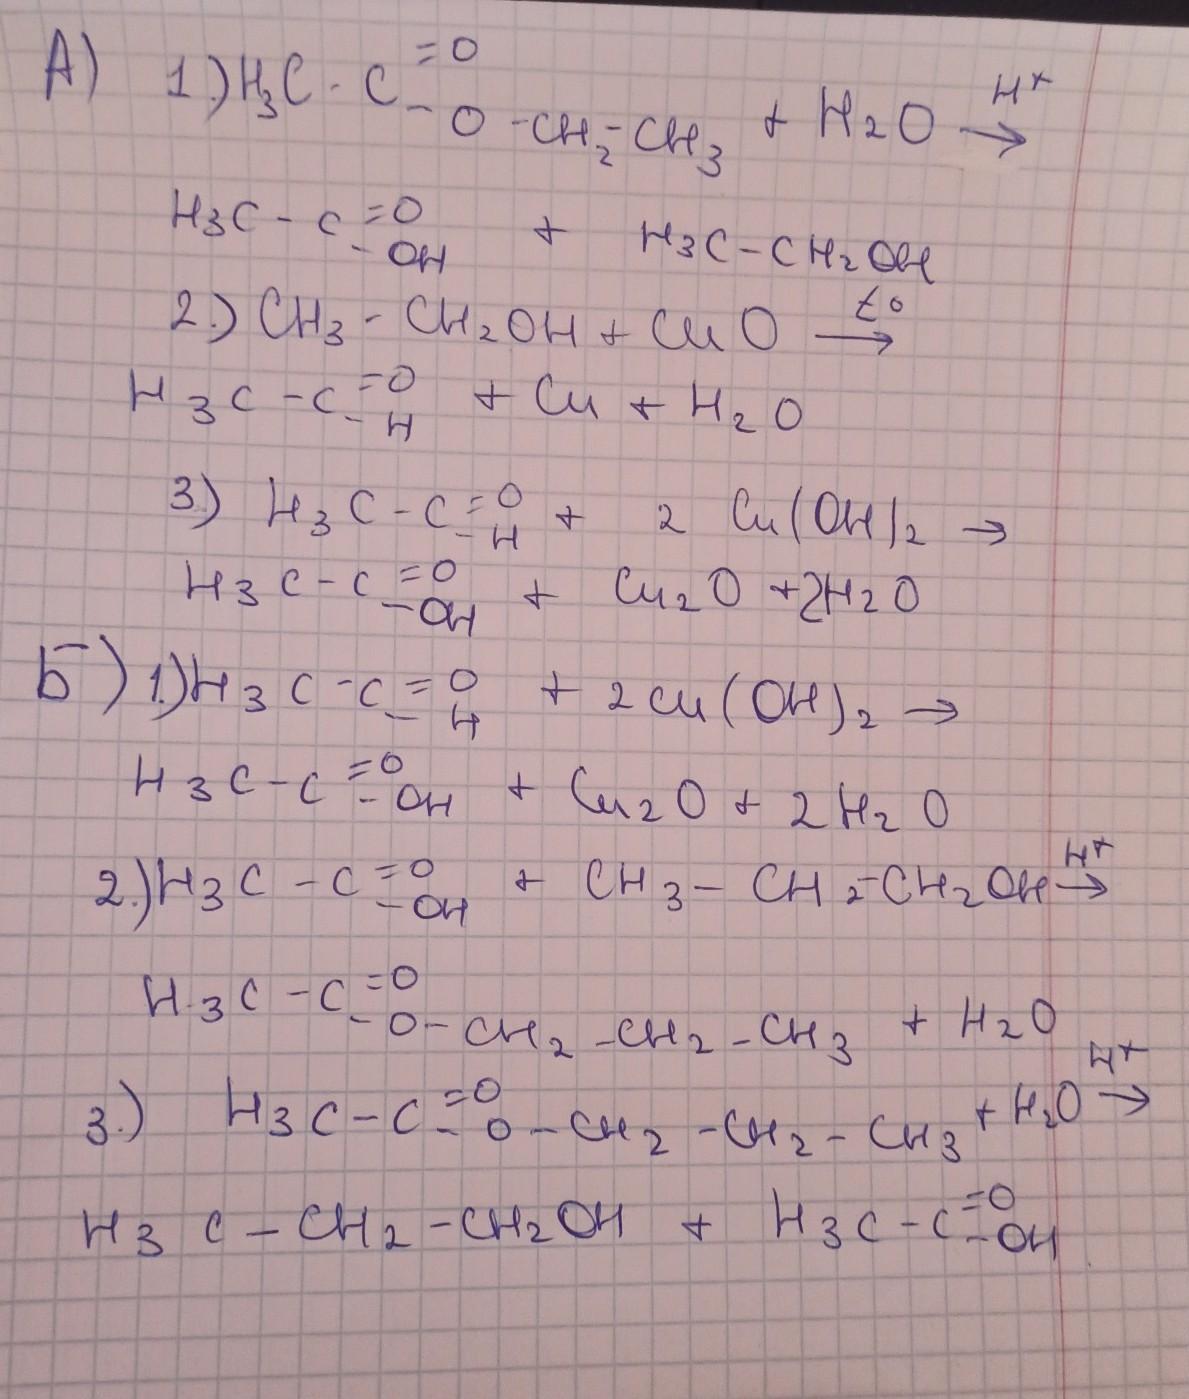 А) 1.) H₃C - C =O - O - CH₂ - CH₃ + H₂O →H⁺
H₃C - C =O - OH + H₃C - CH₂OH
2.) CH₃ - CH₂OH + CuO →t°
H₃C - C =O - H + Cu + H₂O
3.) H₃C - C =O - H + 2 Cu(OH)₂ →
H₃C - C =O - OH + Cu₂O + 2H₂O
Б) 1.) H₃C - C =O - H + 2Cu(OH)₂ →
H₃C - C =O - OH + Cu₂O + 2H₂O
2.) H₃C - C =O - OH + CH₃ - CH₂ - CH₂OH →H⁺
H₃C - C =O - O - CH₂ - CH₂ - CH₃ + H₂O
3.) H₃C - C =O - O - CH₂ - CH₂ - CH₃ + H₂O →H⁺
H₃C - CH₂ - CH₂OH + H₃C - C =O - OH